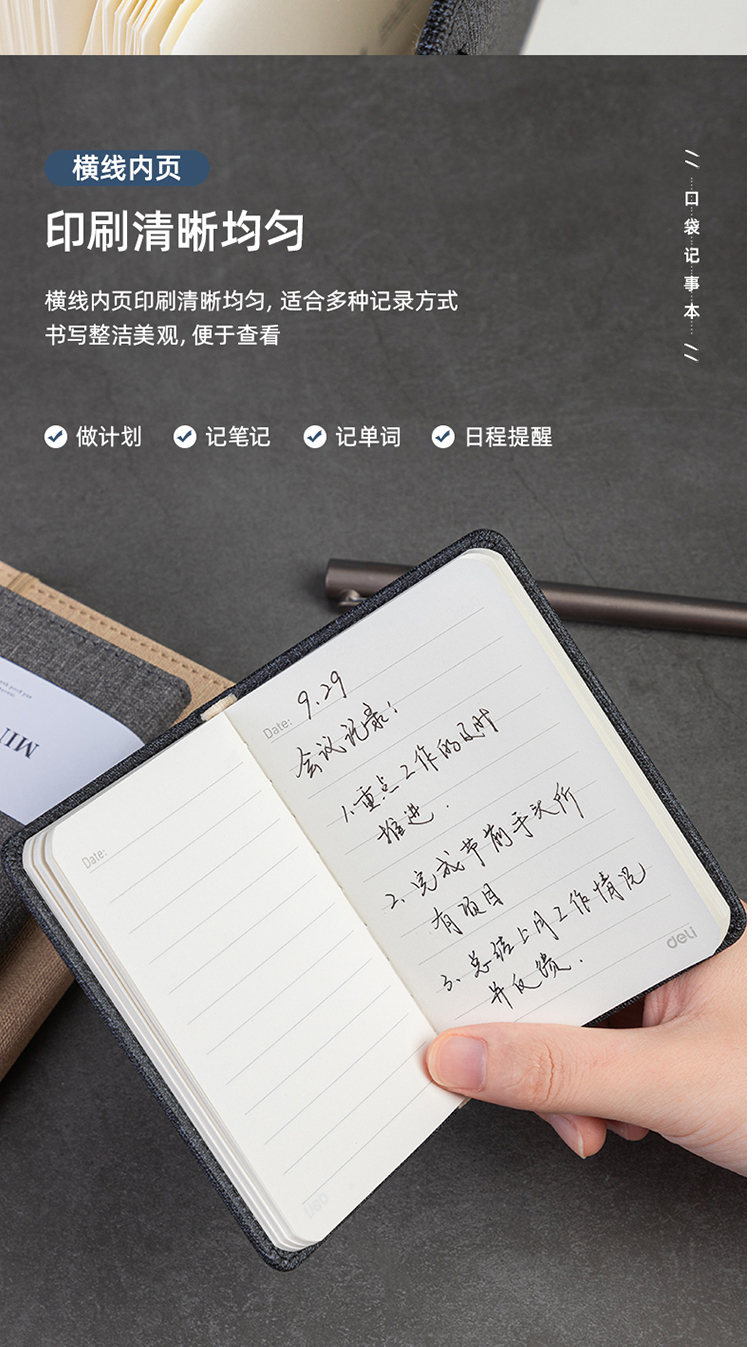 横线内页
印刷清晰均匀
横线内页印刷清晰均匀, 适合多种记录方式
书写整洁美观, 便于查看
做计划 记笔记 记单词 日程提醒
口袋记事本
Date: 9.29
会议记录:
1.重点工作的及时
推进.
2.完成节前手头所
有项目
3.总结上月工作情况
并反馈.
deli
Date:
MIN